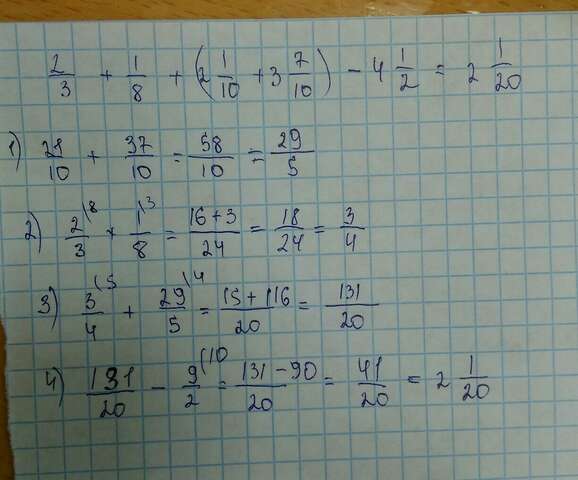 2/3 + 1/8 + (2 1/10 + 3 7/10) - 4 1/2 = 2 1/20
1) 21/10 + 37/10 = 58/10 = 29/5
2) 2/3 \8 + 1/8 \3 = 16+3/24 = 18/24 = 3/4
3) 3/4 \5 + 29/5 \4 = 15+116/20 = 131/20
4) 131/20 - 9/2 \10 = 131-90/20 = 41/20 = 2 1/20